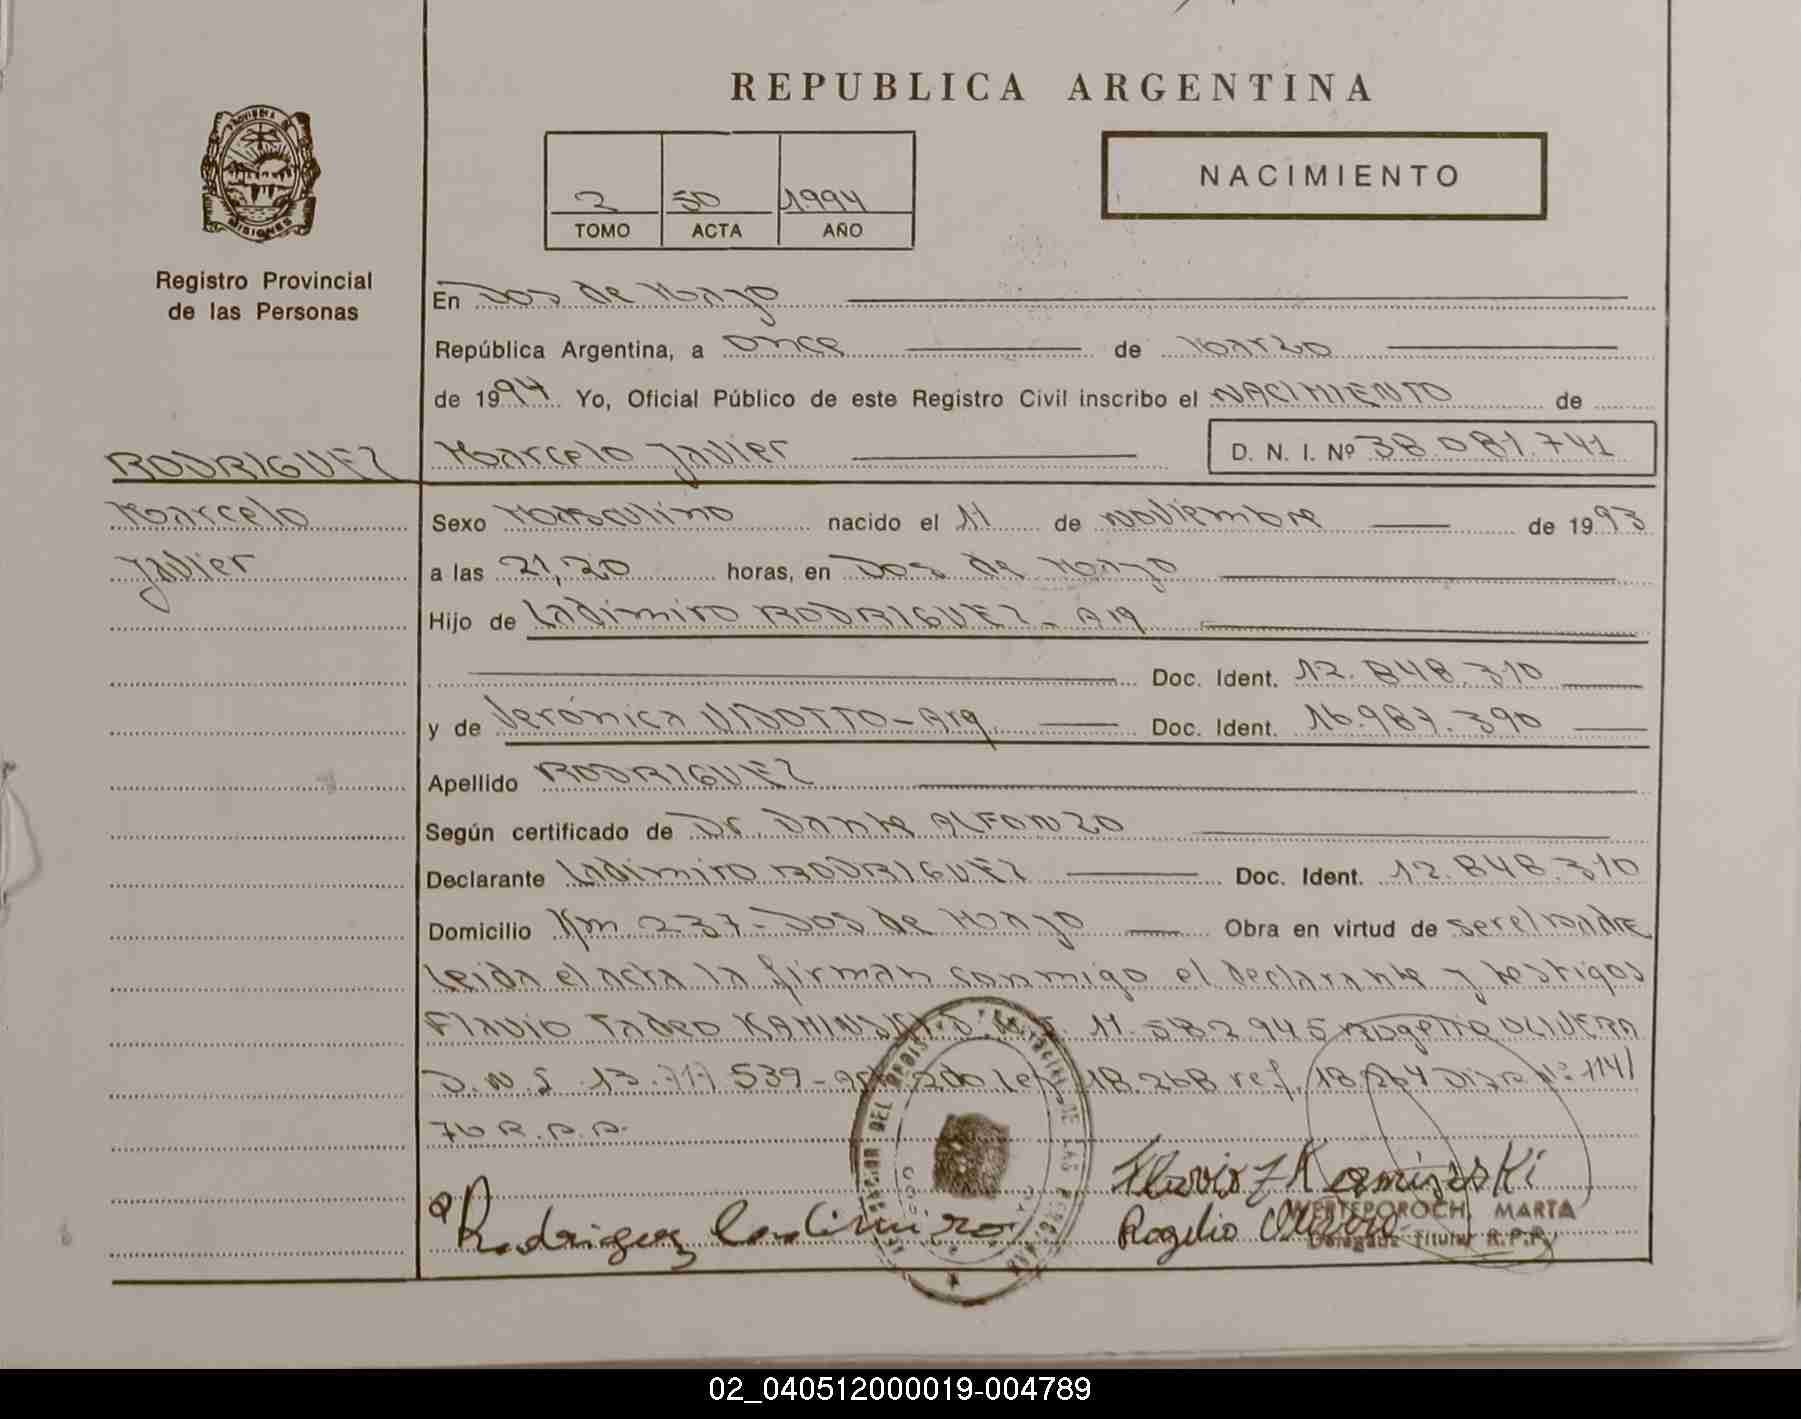 REPUBLICA ARGENTINA
PROVINCIA DE
MISIONES
Registro Provincial
de las Personas
2 50 1994
TOMO ACTA AÑO
NACIMIENTO
En Dos de Mayo
República Argentina, a once de Marzo
de 1994 Yo, Oficial Público de este Registro Civil inscribo el NACIMIENTO de
RODRIGUEZ
Marcelo
Javier
Marcelo Javier D. N. I. Nº 38.081.741
Sexo Masculino nacido el 11 de noviembre de 1993
a las 21,20 horas, en Dos de Mayo
Hijo de Ladimiro RODRIGUEZ - Arg
Doc. Ident. 12.848.310
y de Verónica VIDOTTO - Arg Doc. Ident. 16.987.390
Apellido RODRIGUEZ
Según certificado de Dr. Dante ALFONZO
Declarante Ladimiro RODRIGUEZ Doc. Ident. 12.848.310
Domicilio Km 237 - Dos de Mayo Obra en virtud de ser el padre
Leida el acta la firman conmigo el declarante y testigos
Flavio Tadeo KAMINSKI D.N.I. 11.582.945 Rogelio OLIVERA
D.N.I. 13.717.539 - Ley 18.268 ref. 18.264 Disp Nº 114/
76 R.P.P.
Rodriguez Ladimiro
Flavio T Kaminski
Rogelio Olivera
WERTEPOROCH, MARTA
Delegada Titular R.P.P.
02_040512000019-004789